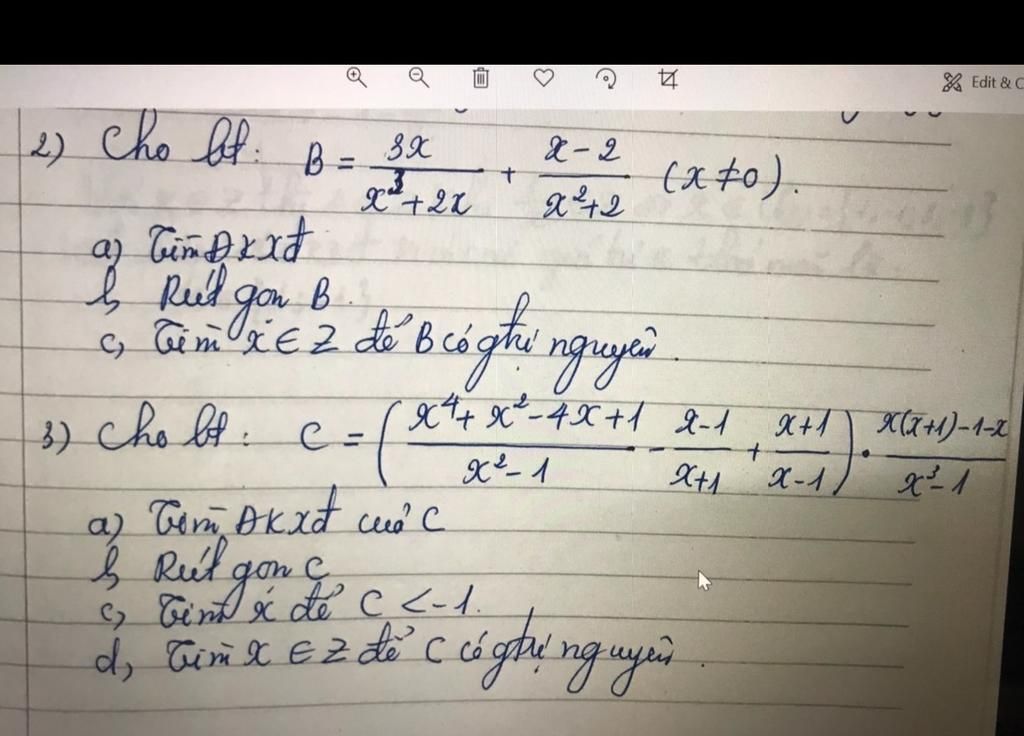 Edit & C
2) Cho bt: B = 3x/(x³+2x) + (x-2)/(x²+2) (x≠0).
a) Tìm ĐKXĐ
b, Rút gọn B.
c, Tìm x ∈ Z để B có gtrị nguyên.
3) Cho bt: C = ((x⁴+x²-4x+1)/(x²-1) - (x-1)/(x+1) + (x+1)/(x-1)) . (x(x+1)-1-x)/(x³-1)
a) Tìm ĐKXĐ của C
b, Rút gọn C
c, Tìm x để C < -1.
d, Tìm x ∈ Z để C có gtrị nguyên.